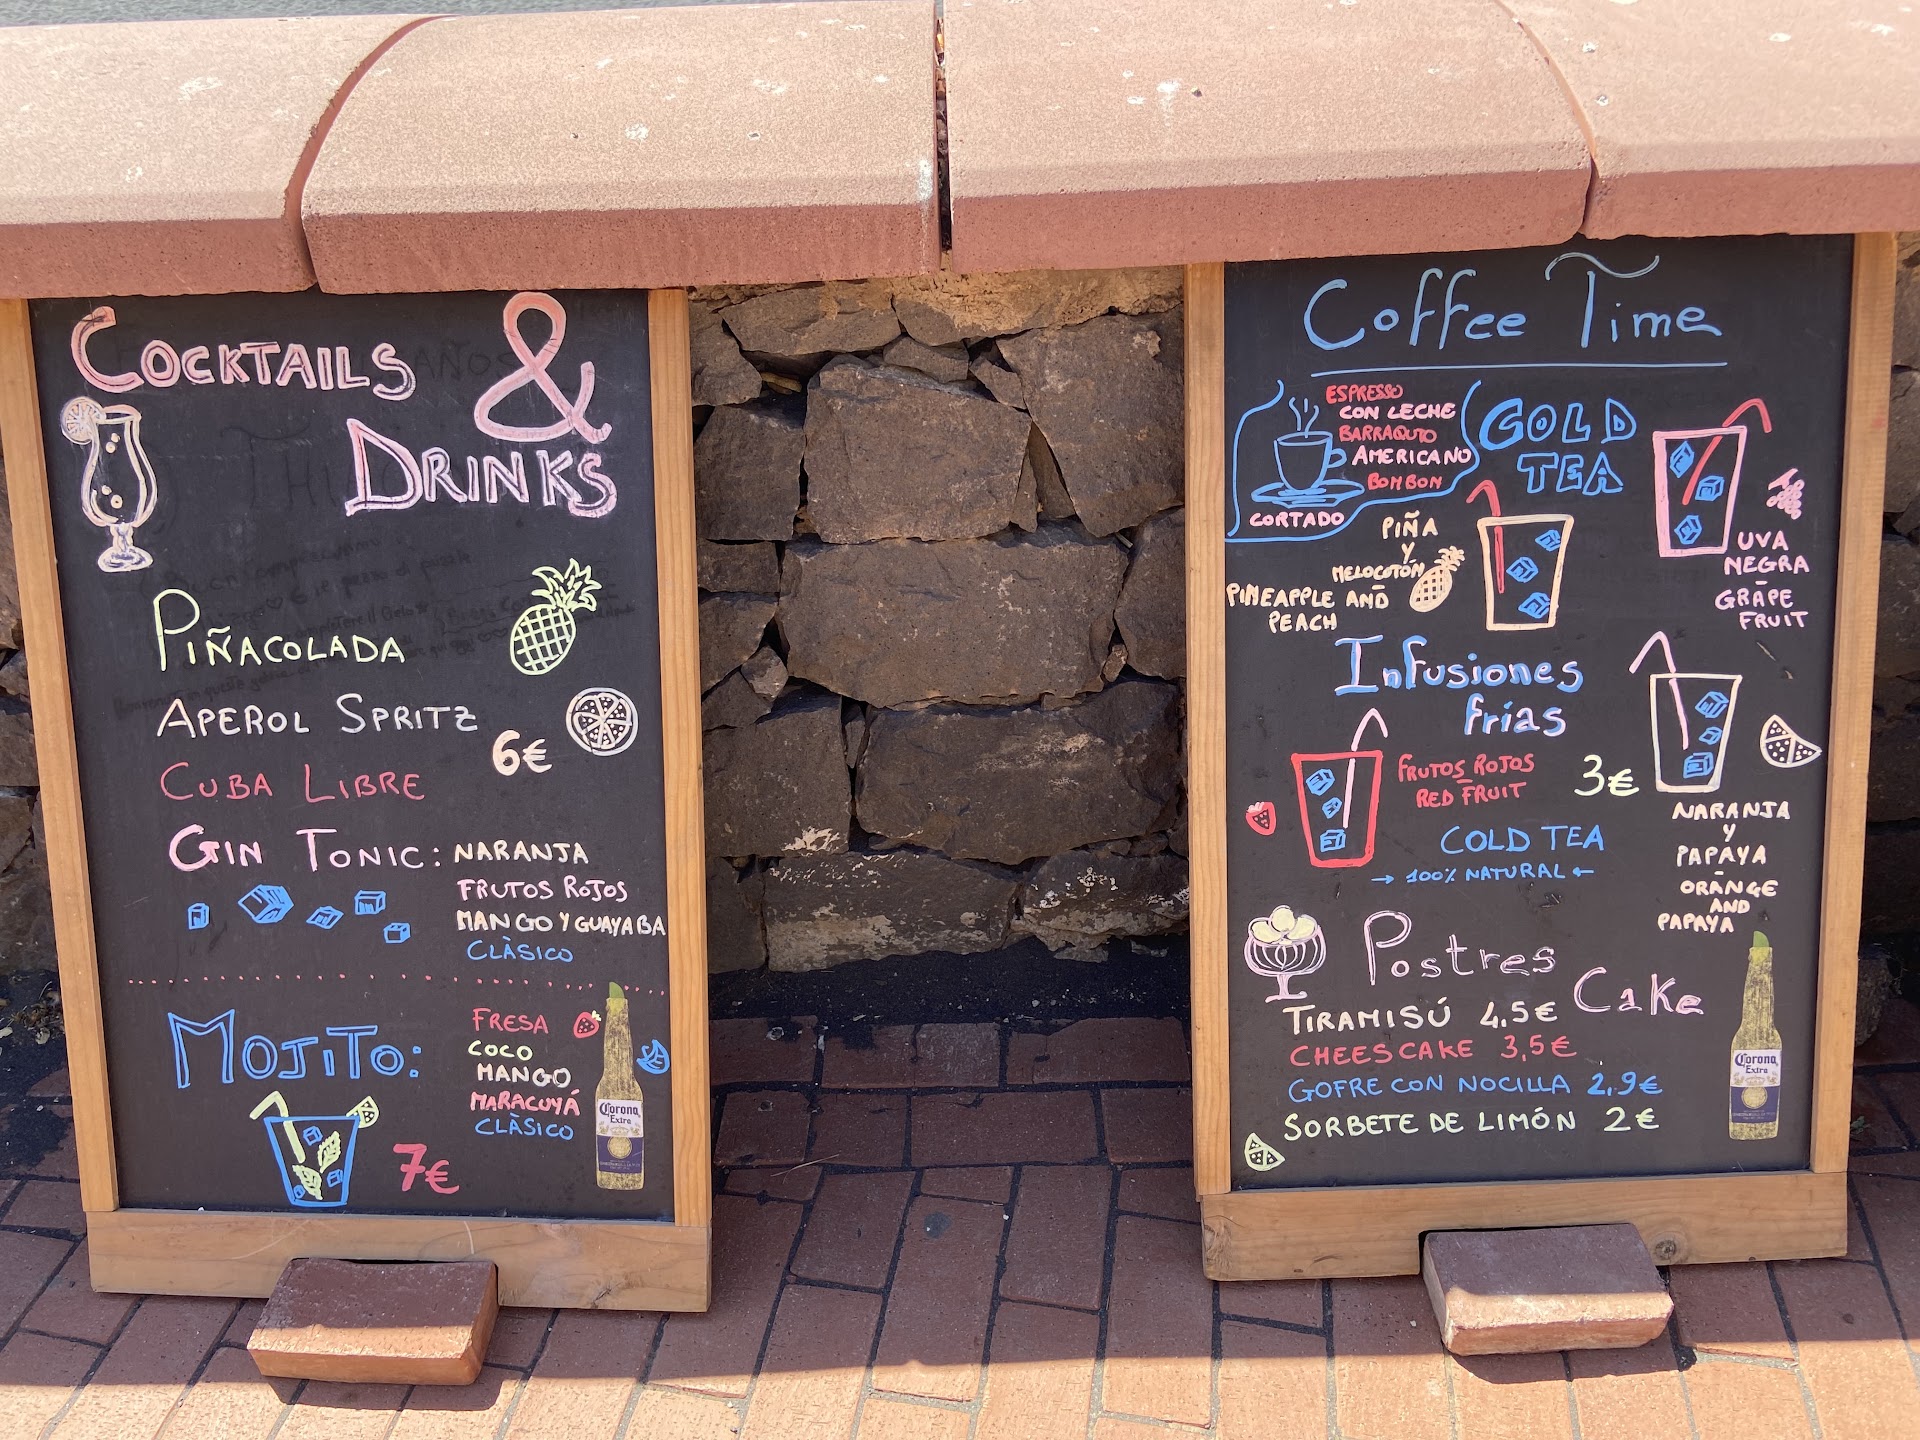 COCKTAILS &
DRINKS
PIÑACOLADA
APEROL SPRITZ
6€
CUBA LIBRE
GIN TONIC: NARANJA
FRUTOS ROJOS
MANGO Y GUAYABA
CLÀSICO
MOJITO:
FRESA
COCO
MANGO
MARACUYÁ
CLÀSICO
7€
Corona
Extra
Coffee Time
ESPRESSO
CON LECHE
BARRAQUTO
AMERICANO
BOMBON
CORTADO
COLD
TEA
PIÑA
Y
MELOCOTÓN
-
PINEAPPLE AND
PEACH
UVA
NEGRA
-
GRAPE
FRUIT
Infusiones
frias
FRUTOS ROJOS
-
RED FRUIT
3€
COLD TEA
→ 100% NATURAL ←
NARANJA
Y
PAPAYA
-
ORANGE
AND
PAPAYA
Postres
Cake
TIRAMISÚ 4,5€
CHEESCAKE 3,5€
GOFRE CON NOCILLA 2,9€
SORBETE DE LIMÓN 2€
Corona
Extra